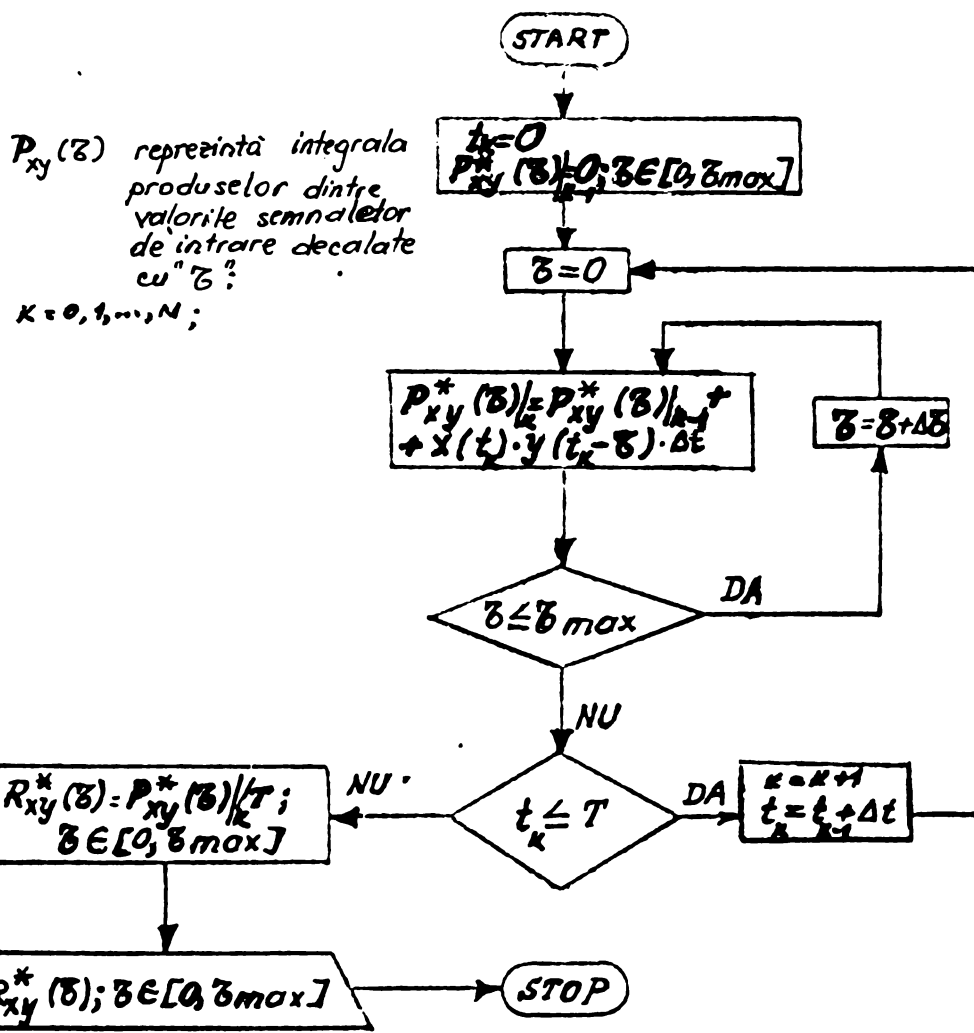 START
P_xy(τ) reprezintă integrala
produselor dintre
valorile semnalelor
de intrare decalate
cu "τ":
K = 0, 1, ..., N ;
t_k = 0
P*_xy(τ)|_{k-1} = 0; τ ∈ [0, τmax]
τ = 0
P*_xy(τ)|_k = P*_xy(τ)|_{k-1} +
+ x(t_k) · y(t_k - τ) · Δt
τ = τ + Δτ
τ ≤ τmax
DA
NU
t_k ≤ T
NU
DA
k = k + 1
t_k = t_{k-1} + Δt
R*_xy(τ) = P*_xy(τ)|_k / T ;
τ ∈ [0, τmax]
R*_xy(τ); τ ∈ [0, τmax]
STOP